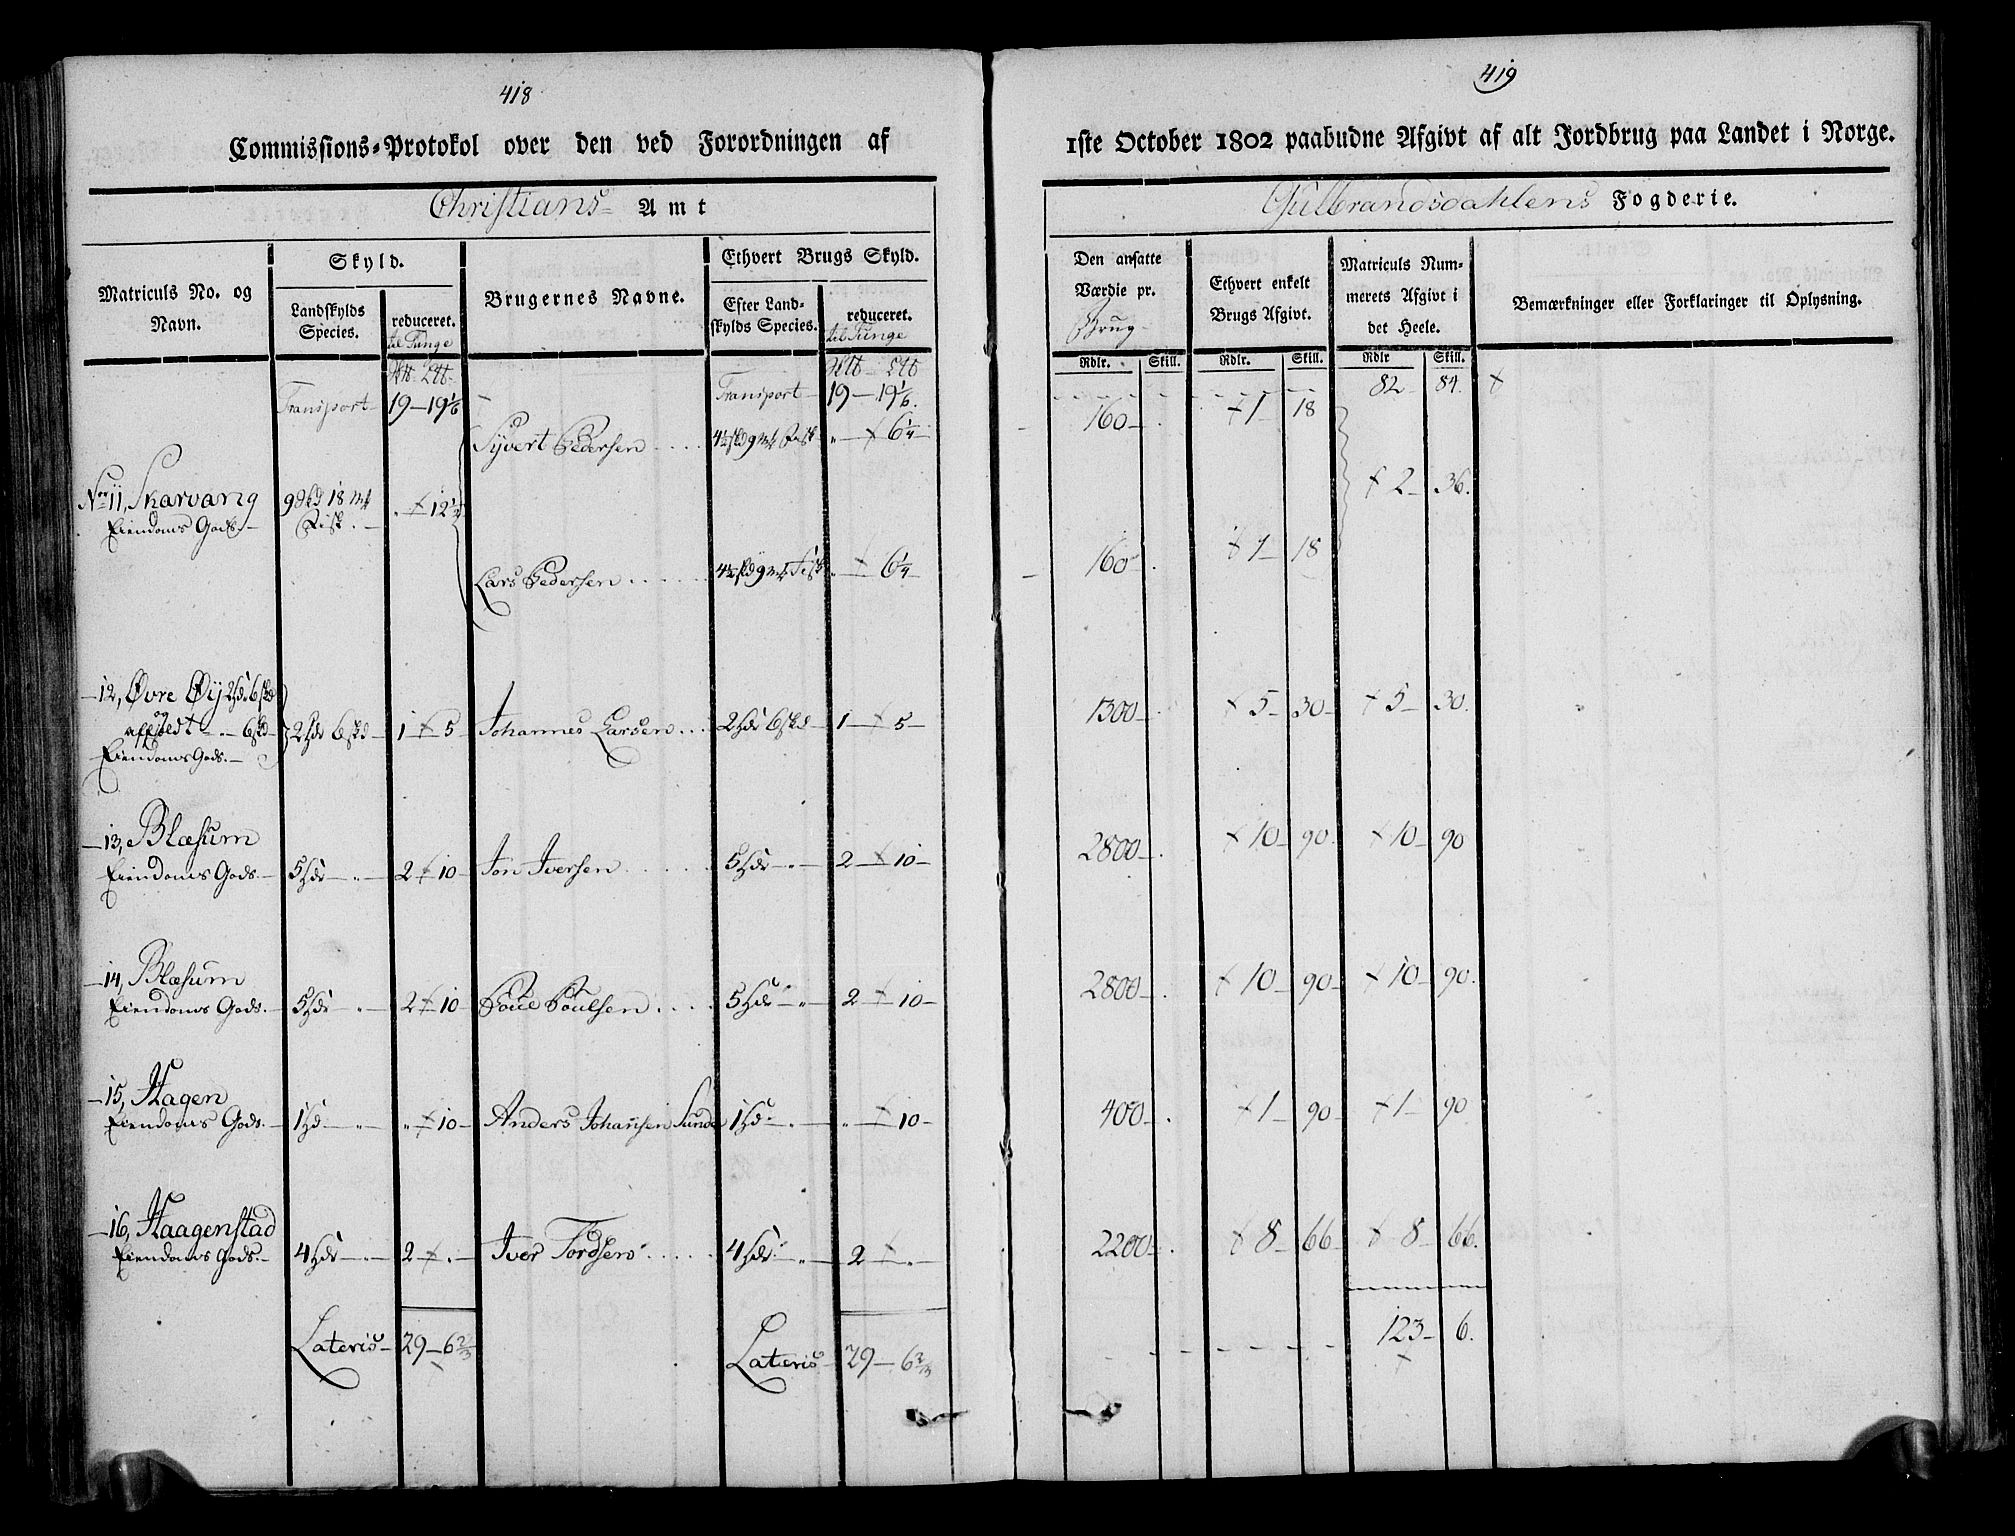 418
Commissions-Protokol over den ved Forordningen af
Christians Amt
Matriculs No. og Navn.
Skyld.
Landskylds Species.
reduceret.
til Tunge
Brugernes Navne.
Ethvert Brugs Skyld.
Efter Landskylds Species.
reduceret.
til Tunge
Transport 19 — 19 1/6 Transport 19 — 19 1/6.
Syvert Pedersen 6 1/4
No 11, Skarvang
Eiendoms Gods.
9 Skd 18 mk Fisk. 12 1/2
Lars Pedersen 6 1/4
12, Øvre Øy 2 Hdr 6 Skd
og
afføedt 6 Skd
Eiendoms Gods.
2 Hdr 6 Skd 1 + 5 Johannes Larsen 2 Hdr 6 Skd 1 + 5
13, Blæsum
Eiendoms Gods. 5 Hdr 2 + 10 Jon Iversen 5 Hdr 2 + 10
14, Blæsum
Eiendoms Gods. 5 Hdr 2 + 10 Poul Poulsen 5 Hdr 2 + 10
15, Hagen
Eiendoms Gods. 1 Hd " + 10 Anders Johansen Sunde 1 Hd " + 10
16, Haagenstad
Eiendoms Gods. 4 Hdr 2 + " Iver Tordsen 4 Hdr 2 + "
Lateris 29 — 6 2/3 Lateris 29 — 6 2/3
419
1ste October 1802 paabudne Afgivt af alt Jordbrug paa Landet i Norge.
Gulbrandsdahlens Fogderie.
Den ansatte Værdie pr.
Brug
Ethvert enkelt Brugs Afgivt.
Matriculs Nummerets Afgivt i det Heele.
Bemærkninger eller Forklaringer til Oplysning.
Rdlr. Skill. Rdlr. Skill. Rdlr Skill.
82 84. +
160 + 1 18
+ 2 36.
160 + 1 18
1300 + 5 30 + 5 30.
2800 + 10 90. + 10 90
2800 + 10 90 + 10 90.
400 + 1 90 + 1 90
2200 + 8 66 + 8 66.
123 6.